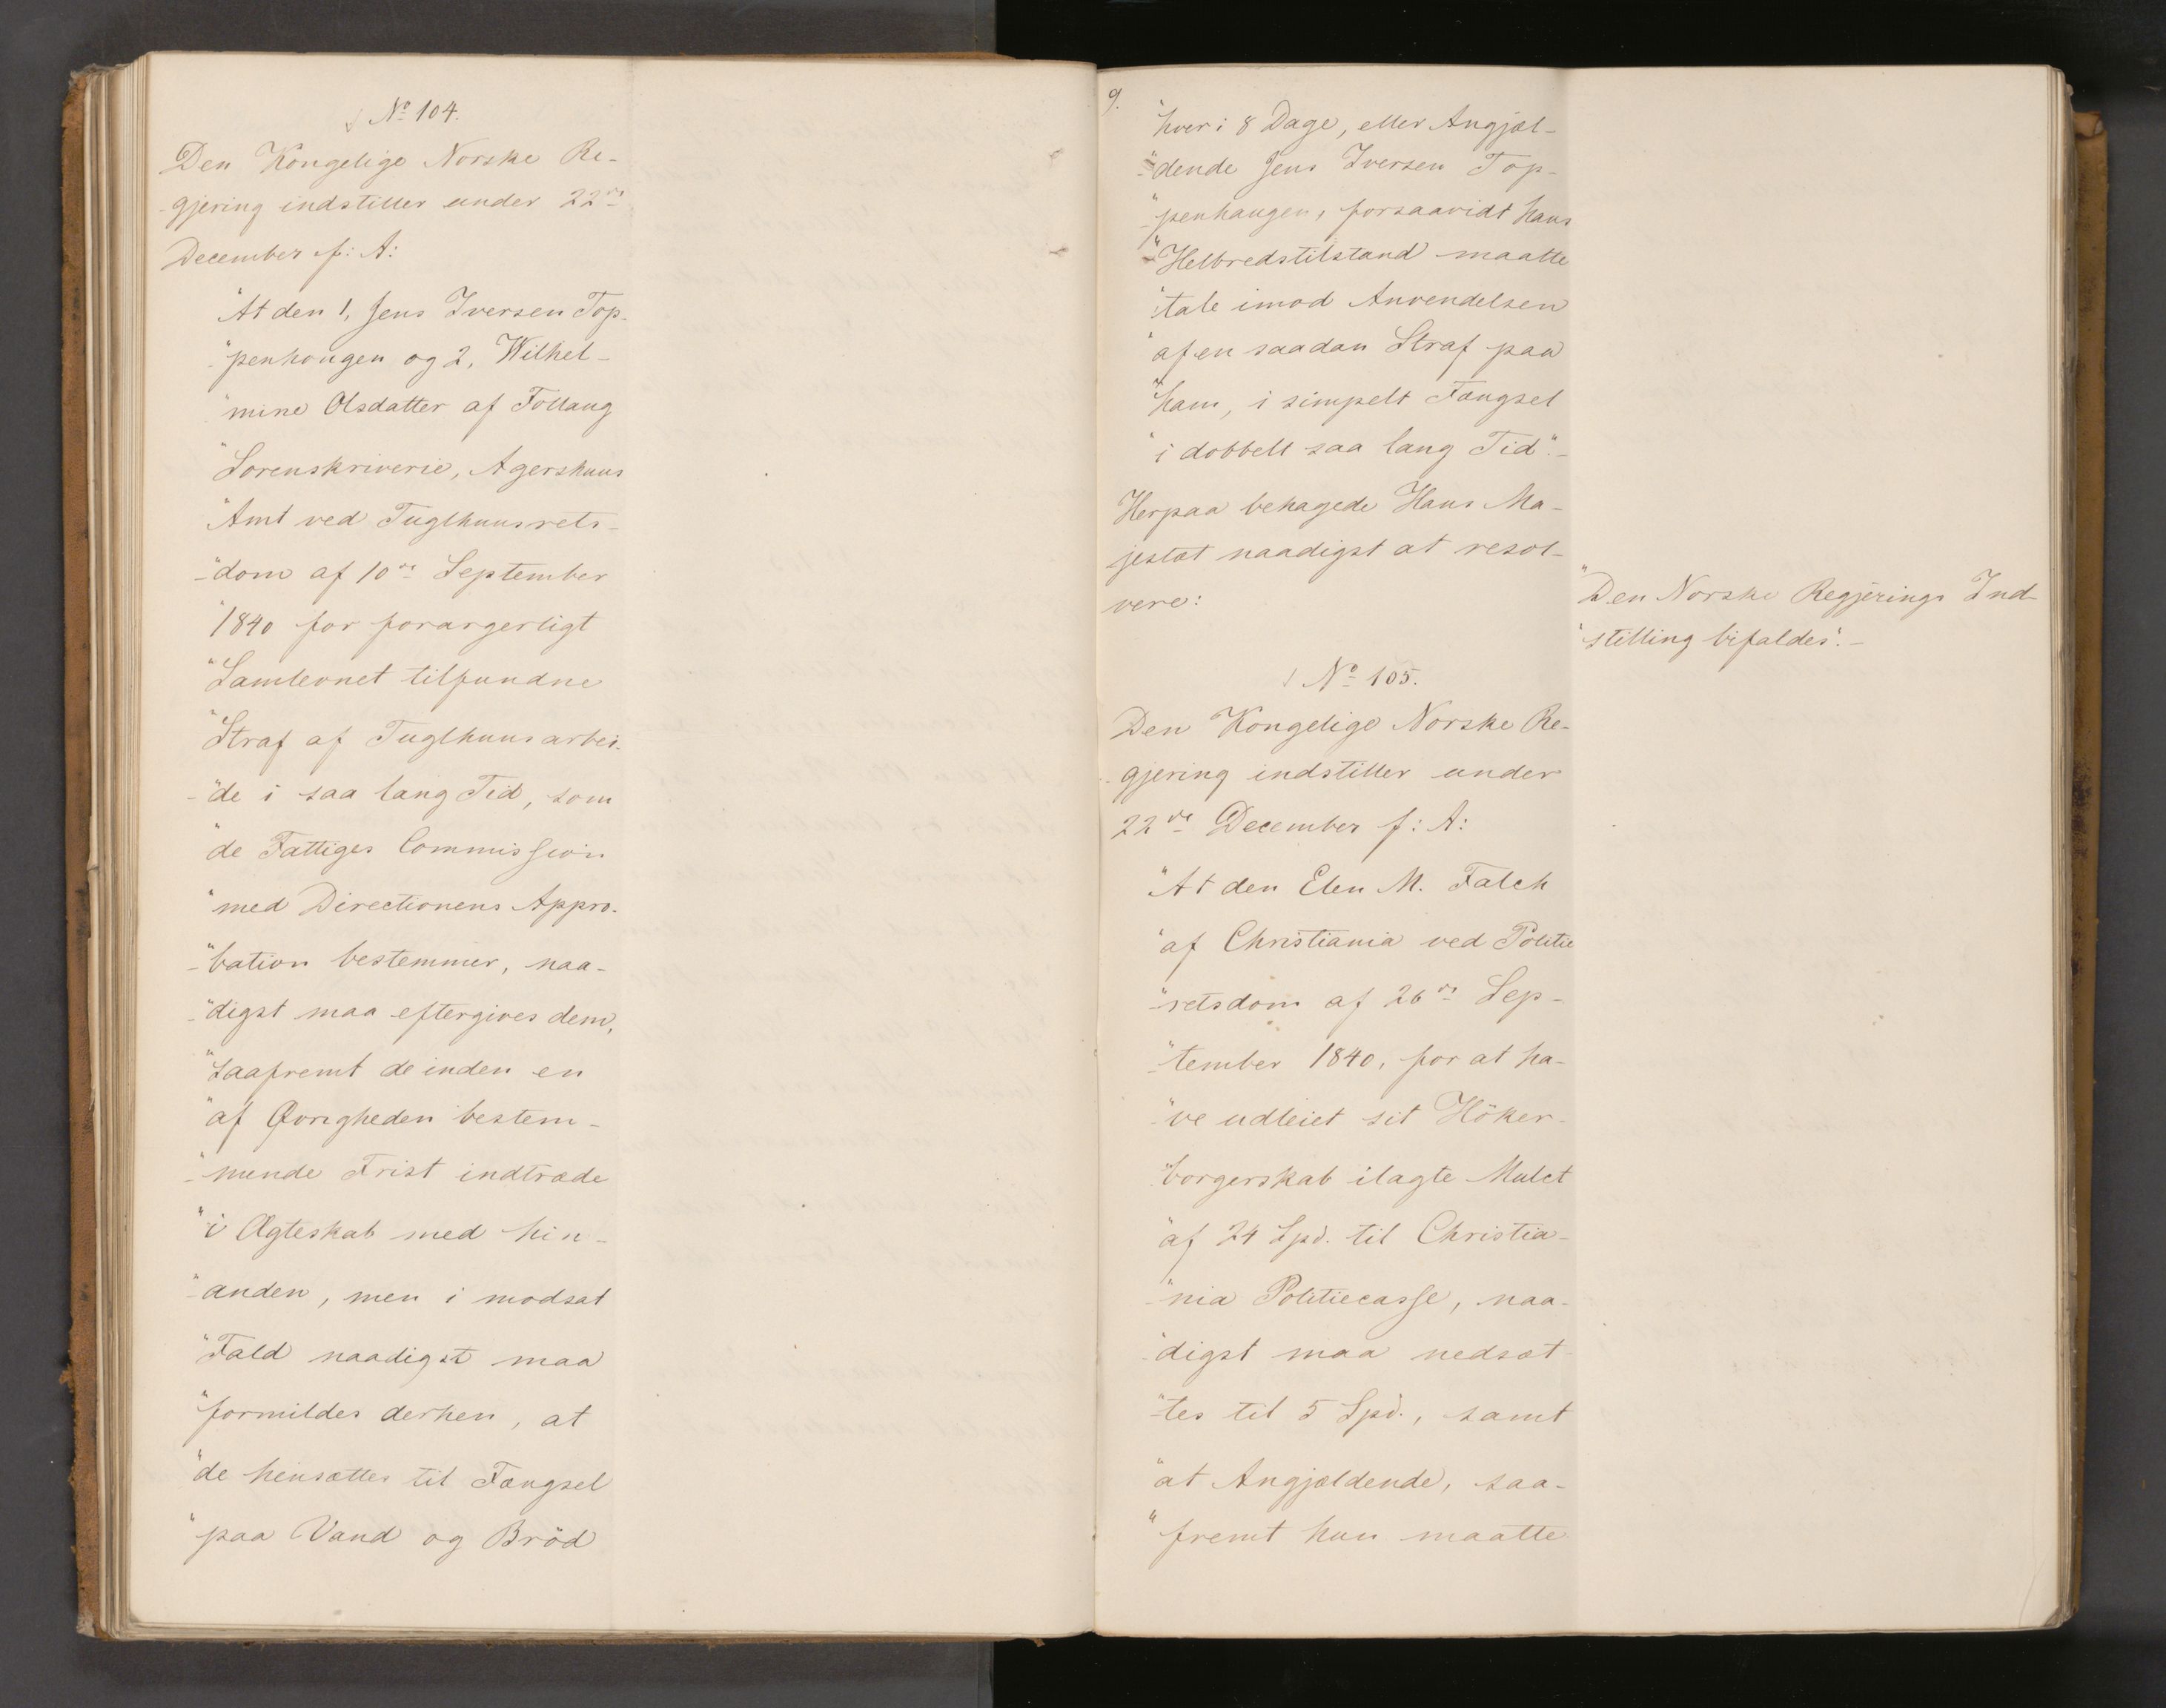 No 104.
Den Kongelige Norske Re-
-gjering indstiller under 22de
December f: A:
"At den 1, Jens Iversen Top-
-"penhougen og 2, Wilhel-
"mine Olsdatter af Follaug
"Sorenskriverie, Agershuus
"Amt ved Tugthuusrets-
-"dom af 10de September
"1840 for forargerligt
"Samlevnet tilfundne
"Straf af Tugthuusarbei-
-"de i saa lang Tid, som
"de Fattiges Commission
"med Directionens Appro-
-"bation bestemmer, naa-
-"digst maa eftergives dem,
"saafremt de inden en
"af Øvrigheden bestem-
-"mende Frist indtræde
"i Ægteskab med hin-
-"anden, men i modsat
"Fald naadigst maa
"formildes derhen, at
"de hensættes til Fængsel
"paa Vand og Bröd
9.
"hver i 8 Dage, eller Angjæl-
-"dende Jens Iversen Top-
-"penhaugen, forsaavidt hans
"Helbredstilstand maatte
"tale imod Anvendelsen
"af en saadan Straf paa
"ham, i simpelt Fængsel
"i dobbelt saa lang Tid".-
Herpaa behagede Hans Ma-
jestæt naadigst at resol-
vere:
"Den Norske Regjerings Ind-
"stilling bifaldes".-
No 105.
Den Kongelige Norske Re-
-gjering indstiller under
22de December f: A:
"At den Elen M. Falch
"af Christiania ved Politie
-"retsdom af 26de Sep-
-"tember 1840, for at ha-
-"ve udleiet sit Höker-
-"borgerskab ilagte Mulct
"af 24 Spd. til Christia-
-"nia Politiecasse, naa-
-"digst maa nedsæt-
-"tes til 5 Spd., samt
"at Angjældende, saa-
"fremt hun maatte